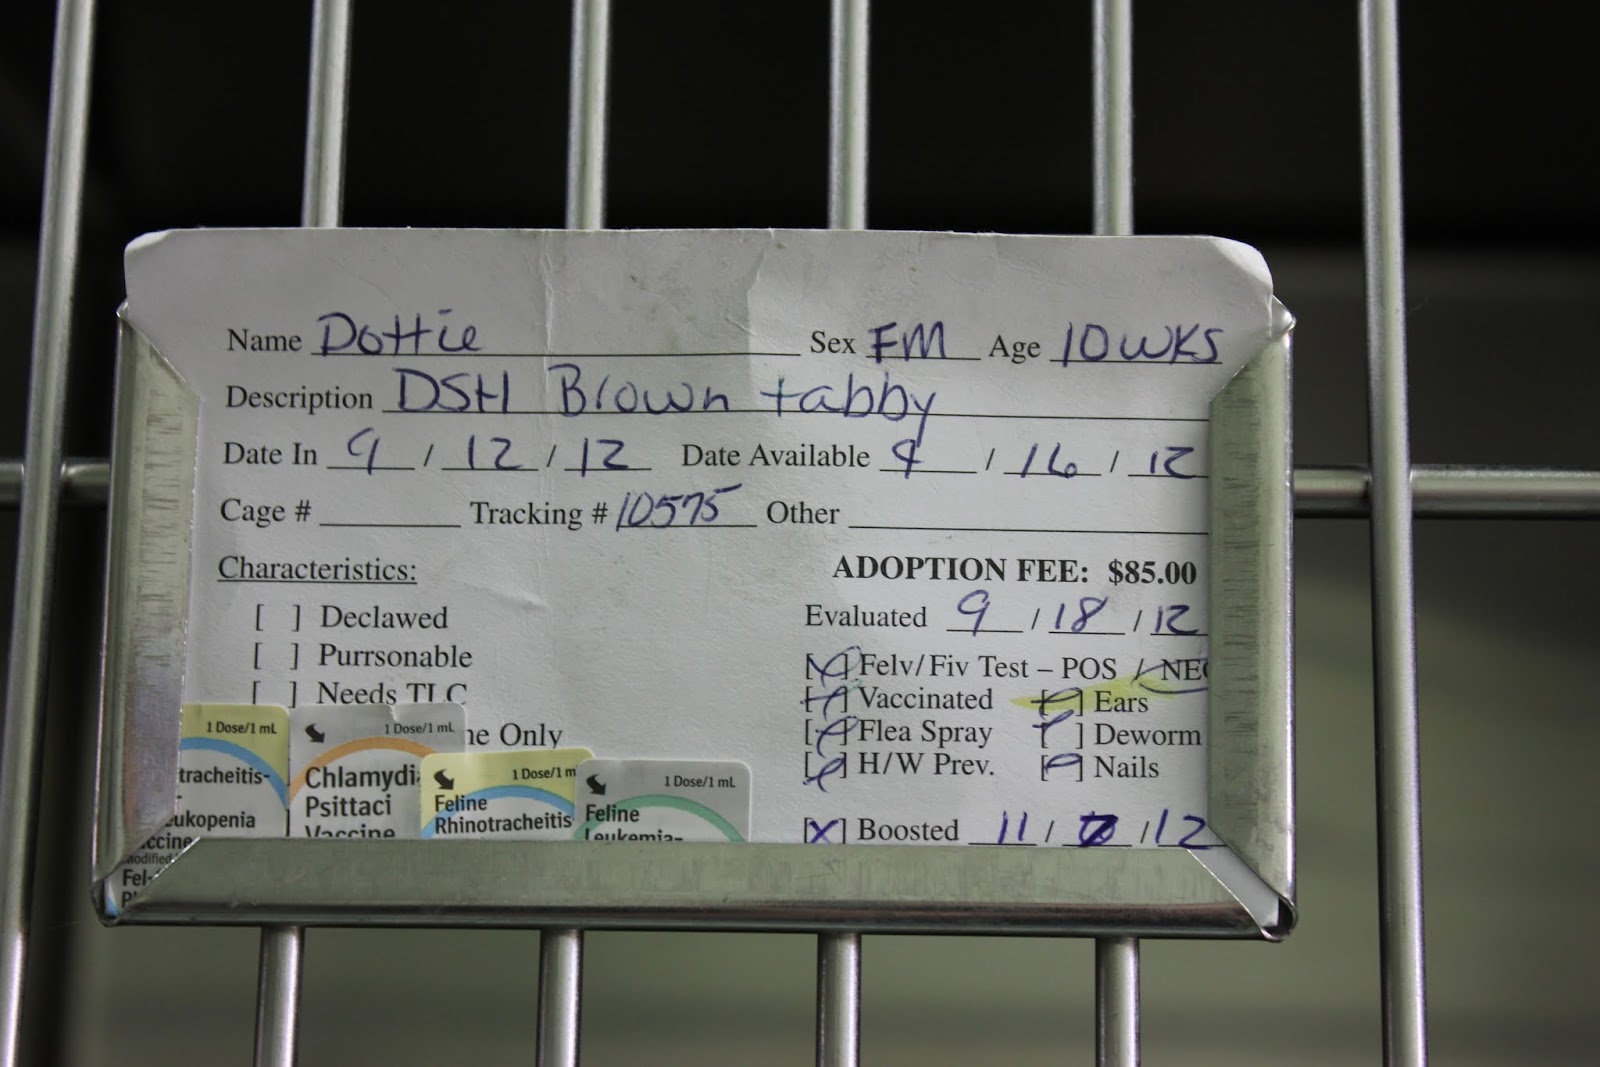 Name Dottie Sex FM Age 10 WKS
Description DSH Brown tabby
Date In 9 / 12 / 12 Date Available 9 / 16 / 12
Cage # Tracking # 10575 Other
Characteristics:
ADOPTION FEE: $85.00
[ ] Declawed
Evaluated 9 / 18 / 12
[ ] Purrsonable
[ ] Needs TLC
ne Only
[X] Felv/Fiv Test – POS / NEG
[X] Vaccinated [X] Ears
[X] Flea Spray [X] Deworm
[X] H/W Prev. [X] Nails
[X] Boosted 11 / / 12
1 Dose/1 mL
tracheitis-
eukopenia
ccine
Modified
Fel-
1 Dose/1 mL
Chlamydi
Psittaci
Vaccine
1 Dose/1 m
Feline
Rhinotracheitis
1 Dose/1 mL
Feline
Leukemia-